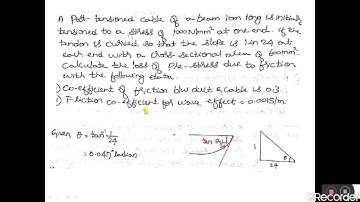 A Post-tensioned cable of a beam 10m long is initially
tensioned to a stress of 1000N/mm² at one end. if the
tendon is curved so that the slope is 1 in 24 at
each end with a cross-sectional area of 600mm².
Calculate the loss of Pre-stress due to friction
with the following data.
1) Co-efficient of friction b/w duct & cable is 0.3.
1) Friction co-efficient for wave effect = 0.0015/m.
Given θ = tan⁻¹ 1/24
= 0.0417 radian
tan θ
1
θ
24
Recorder